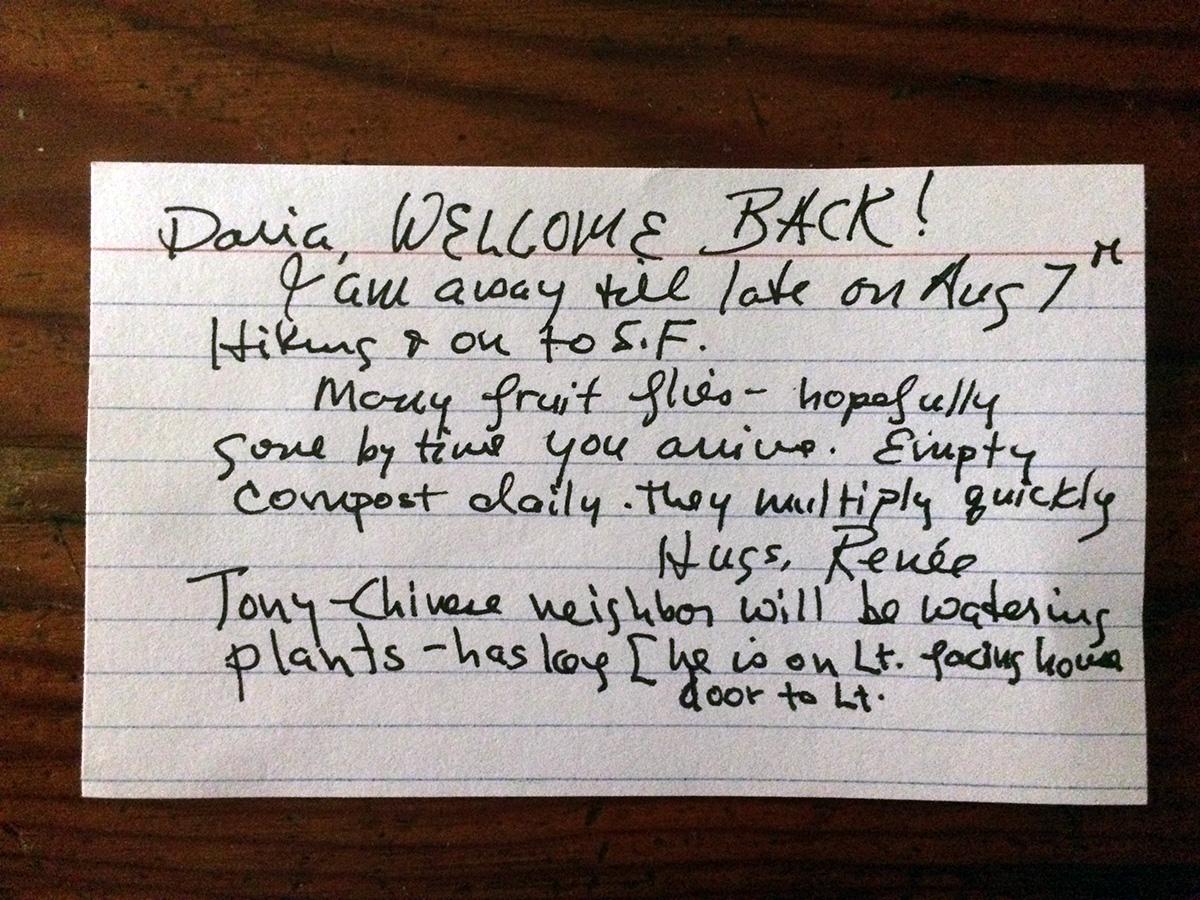 Daria, WELCOME BACK!
I am away till late on Aug 7th
Hiking & on to S.F.
Many fruit flies - hopefully
gone by time you arrive. Empty
compost daily. They multiply quickly
Hugs, Renée
Tony - Chinese neighbor will be watering
plants - has key [he is on Lt. facing house
door to Lt.